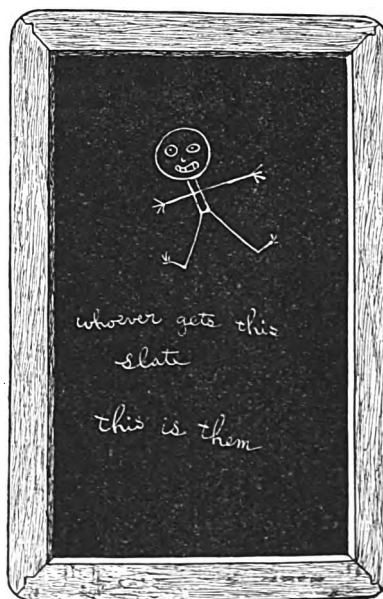 whoever gets this
slate
this is them